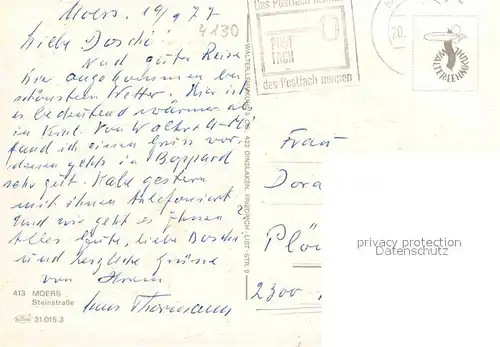 Moers, 19/9 77
4130
Liebe Doschi!
Nach guter Reise
hier angekommen bei
schönstem Wetter. Hier ist
es bedeutend wärmer als
in Kiel. Von Walter
fand ich einen Gruss vor,
denen gehts in Boppard
sehr gut. Habe gestern
mit ihnen telefoniert
Und wie geht es Ihnen?
Alles Gute, liebe Doschi
und herzliche Grüsse
von Ihrem
Thormann
413 MOERS
Steinstraße
31.015 3
DINSLAKEN, FRIEDRICH-LIST-STR. 9
Das Postfach nennen
POST
FACH
das Postfach nennen
20.
Frau
Dora
Plön
2300
privacy protection
Datenschutz